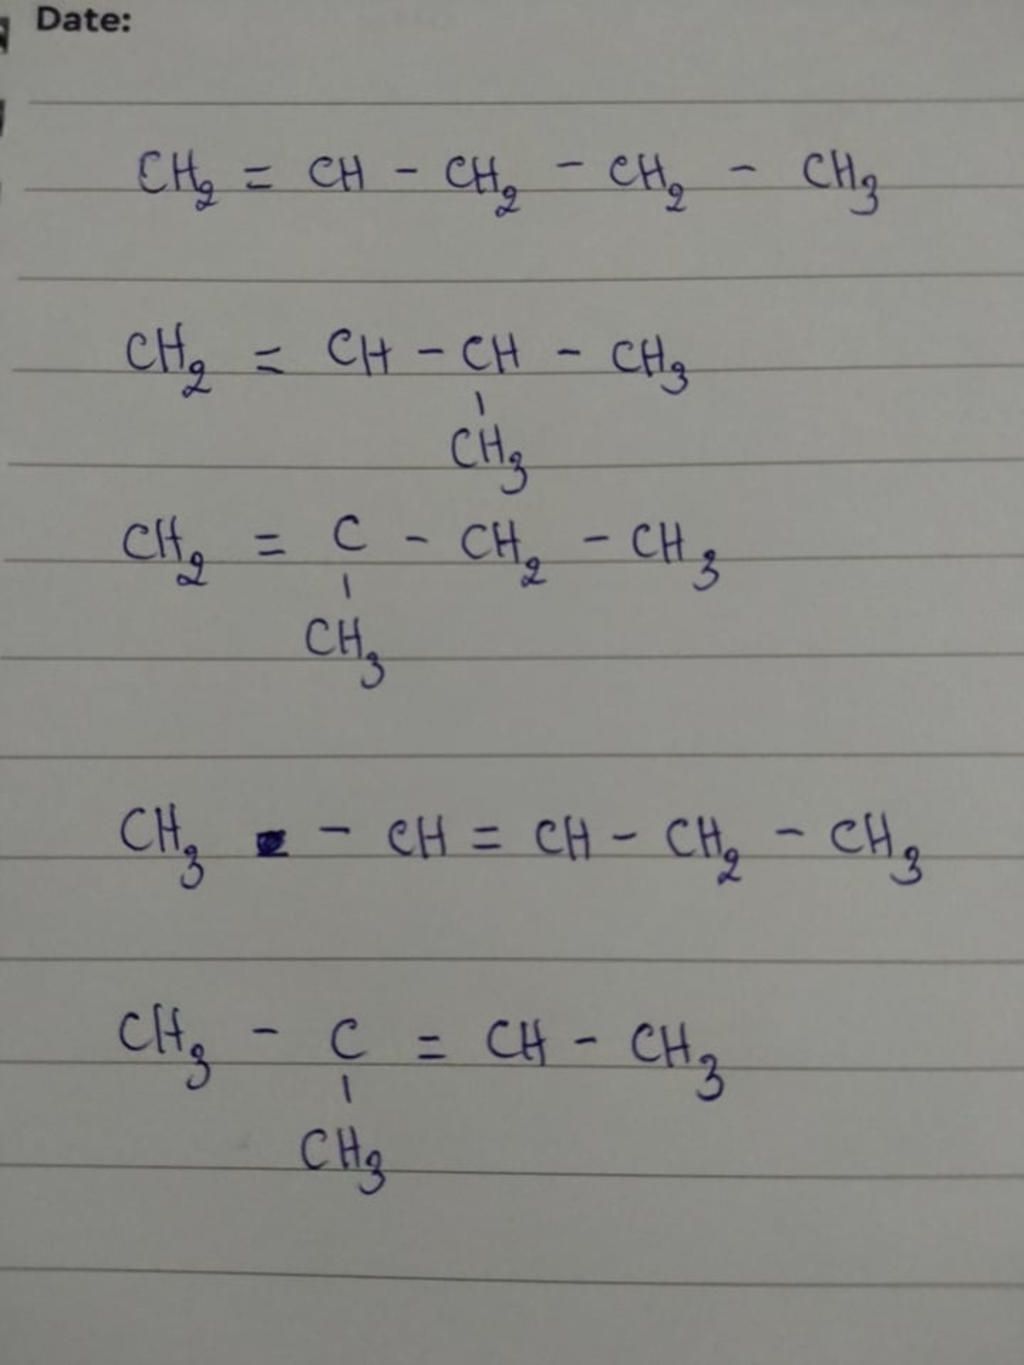 Date:
CH₂ = CH - CH₂ - CH₂ - CH₃
CH₂ = CH - CH - CH₃
CH₃
CH₂ = C - CH₂ - CH₃
CH₃
CH₃ - CH = CH - CH₂ - CH₃
CH₃ - C = CH - CH₃
CH₃